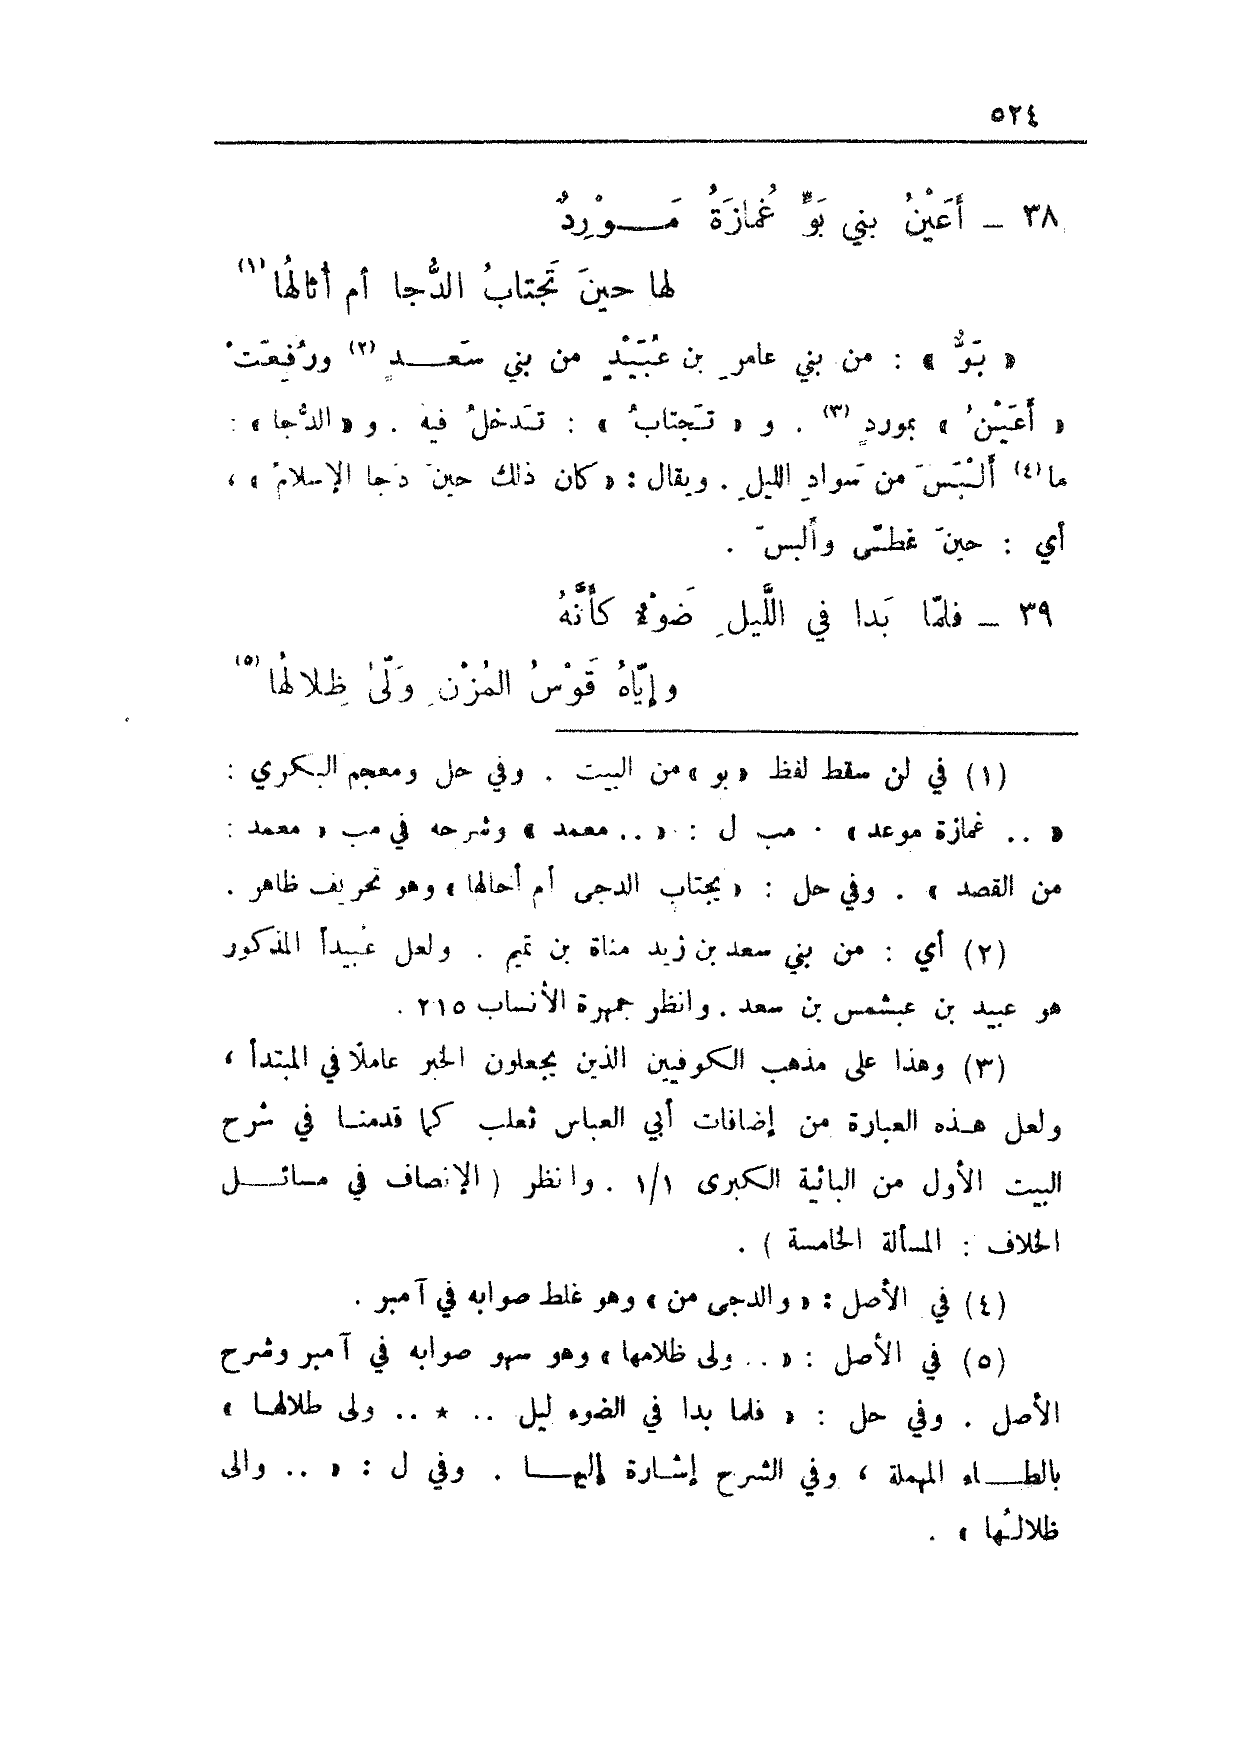 ٥٢٤
٣٨ – أَعَيْنُ بني بَوٍّ غُمازَةُ مَوْرِدٌ
لها حينَ تَجتابُ الدُّجا أم أُثالُها (١)
« بَوٌّ » : من بني عامرِ بن عُبَيْدٍ من بني سَعدٍ (٢) ورُفِعَتْ
« أَعَيْنُ » بموردٍ (٣) . و « تَجتابُ » : تَدخلُ فيه . و « الدُّجا » :
ما (٤) أَلْبَسَ من سَوادِ الليلِ . ويقال : « كان ذلك حينَ دَجا الإسلامُ » ،
أي : حينَ غطّى وأَلبسَ .
٣٩ – فلمّا بَدا في اللَّيلِ ضَوْءٌ كأَنَّهُ
وإيّاهُ قَوْسُ المُزْنِ وَلّىٰ ظِلالُها (٥)
(١) في لن سقط لفظ « بو » من البيت . وفي حل ومعجم البكري :
« .. غمازة موعد » . مب ل : « .. معمد » وشرحه في مب « معمد :
من القصد » . وفي حل : « يجتاب الدجى أم أحالها » وهو تحريف ظاهر .
(٢) أي : من بني سعد بن زيد مناة بن تميم . ولعل عُبيداً المذكور
هو عبيد بن عبشمس بن سعد . وانظر جمهرة الأنساب ٢١٥ .
(٣) وهذا على مذهب الكوفيين الذين يجعلون الخبر عاملًا في المبتدأ ،
ولعل هذه العبارة من إضافات أبي العباس ثعلب كما قدمنا في شرح
البيت الأول من البائية الكبرى ١/١ . وانظر ( الإنصاف في مسائل
الخلاف : المسألة الخامسة ) .
(٤) في الأصل : « والدجى من » وهو غلط صوابه في آمبر .
(٥) في الأصل : « .. ولى ظلامها » وهو سهو صوابه في آمبر وشرح
الأصل . وفي حل : « فلما بدا في الضوء ليل .. * .. ولى طلالها »
بالطاء المهملة ، وفي الشرح إشارة إليها . وفي ل : « .. والى
ظلالُها » .